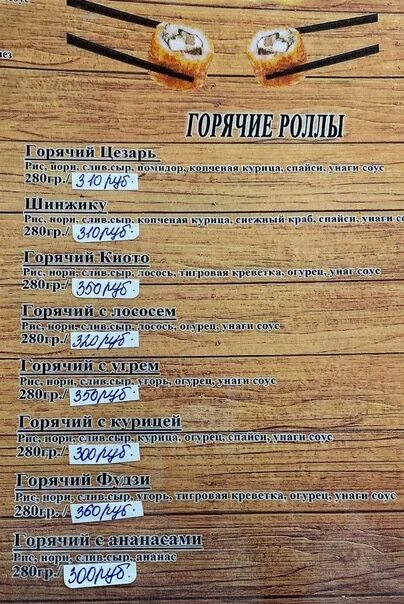 ГОРЯЧИЕ РОЛЛЫ
Горячий Цезарь
Рис, нори, слив.сыр, помидор, копченая курица, спайси, унаги соус
280гр./ 310 руб.
Шинжику
Рис, нори, слив.сыр, копченая курица, снежный краб, спайси, унаги
280гр./ 310 руб.
Горячий Киото
Рис, нори, слив.сыр, лосось, тигровая креветка, огурец, унаг соус
280гр./ 350 руб.
Горячий с лососем
Рис, нори, слив.сыр, лосось, огурец, унаги соус
280гр./ 320 руб.
Горячий с угрем
Рис, нори, слив.сыр, угорь, огурец, унаги соус
280гр./ 350 руб.
Горячий с курицей
Рис, нори, слив.сыр, курица, огурец, спайси, унаги соус
280гр./ 300 руб.
Горячий Фудзи
Рис, нори, слив.сыр, угорь, тигровая креветка, огурец, унаги соус
280гр./ 360 руб.
Горячий с ананасами
Рис, нори, слив.сыр, ананас
280гр./ 300 руб.